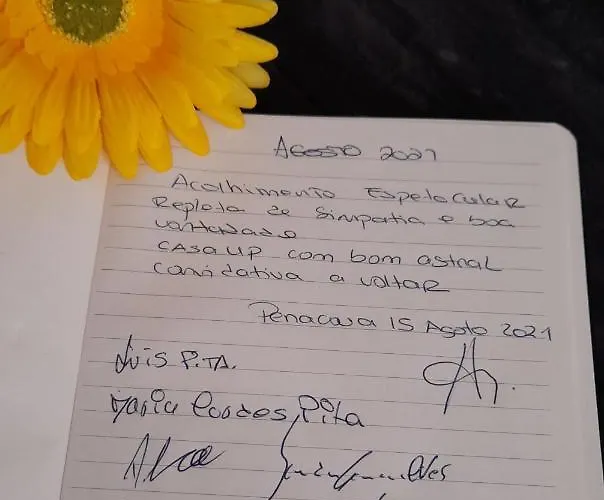 Agosto 2021
Acolhimento Espetocular
Repleto de Simpatia e boa
vontadade
CASA UP com bom astral
convidativa a voltar
Penacova 15 Agosto 2021
Luis Pita.
Maria Lordes Pita